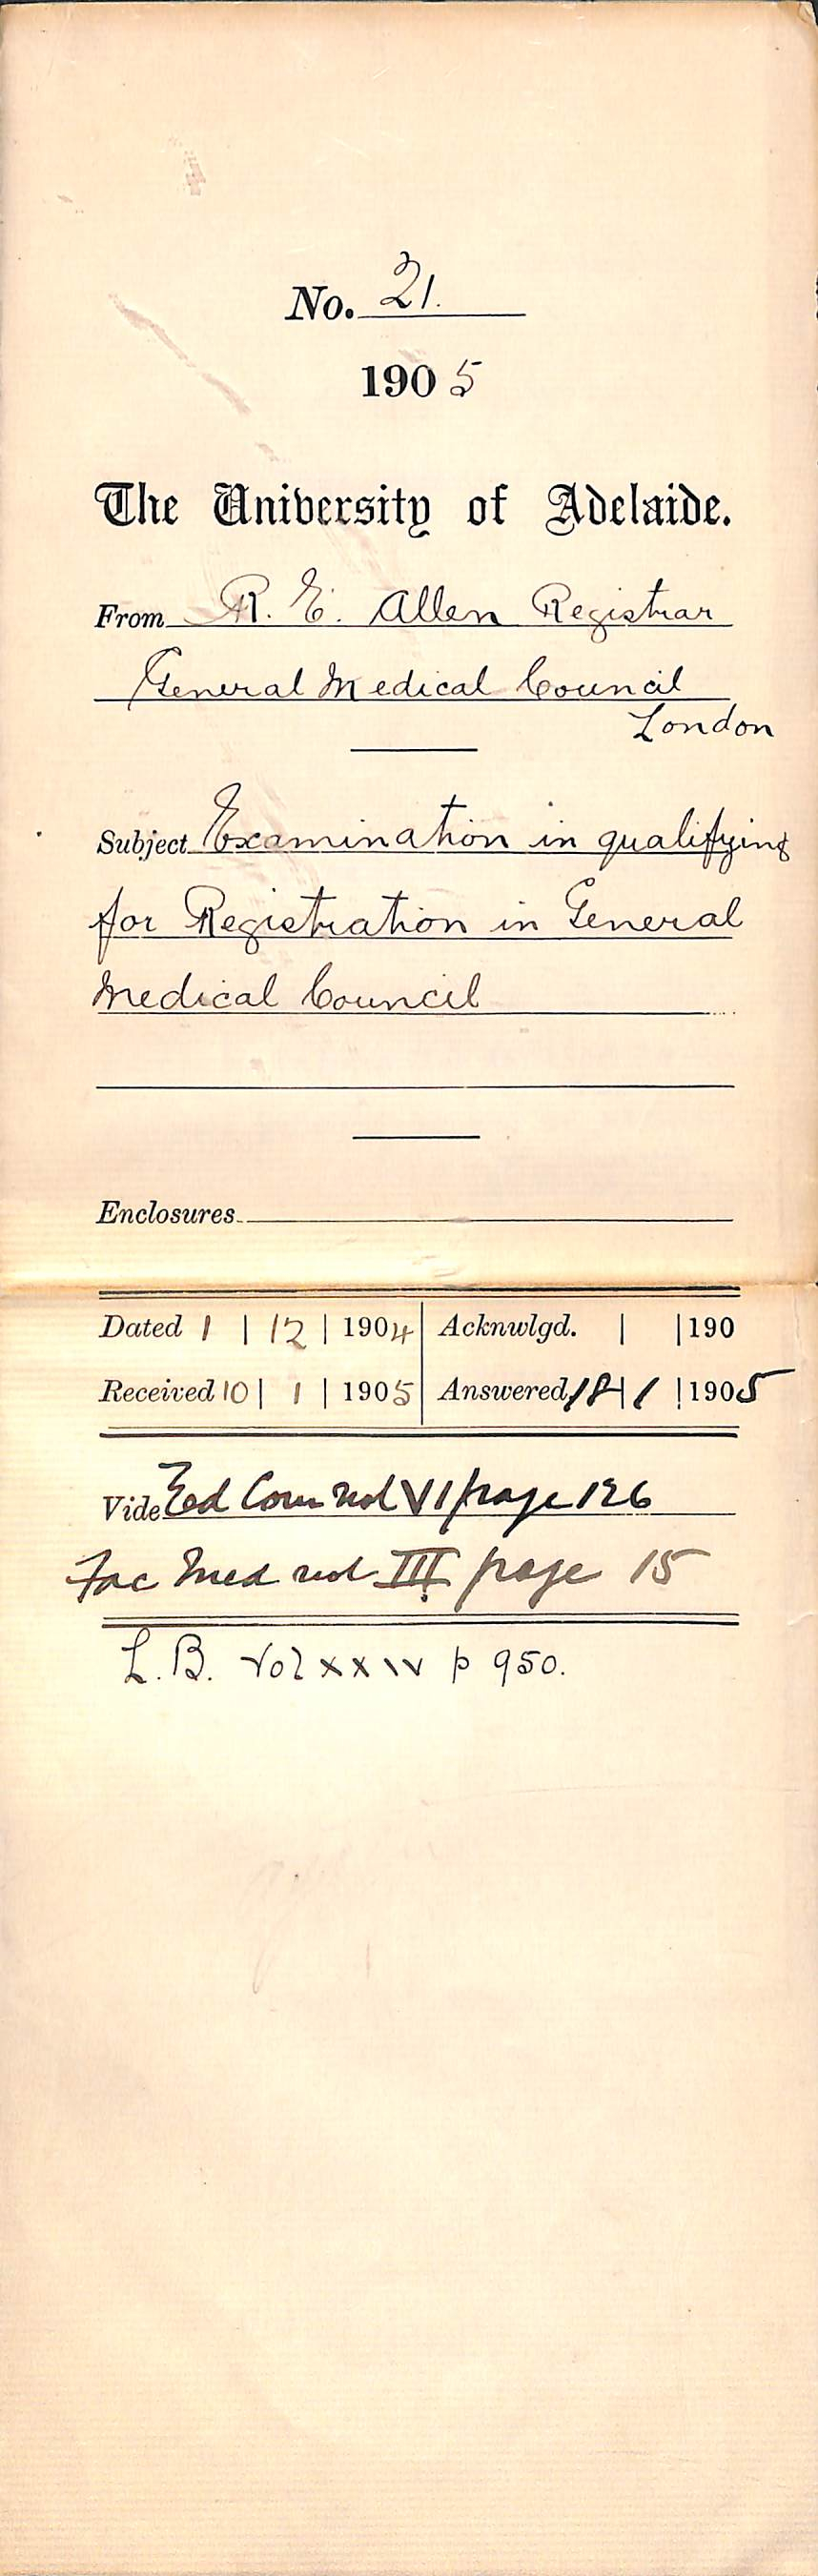 No. 21.
1905
The University of Adelaide.
From R. E. Allen Registrar
General Medical Council
London
Subject Examination in qualifying
for Registration in General
Medical Council
Enclosures
Dated 1 | 12 | 1904 Acknwlgd. | | 190
Received 10 | 1 | 1905 Answered 18 | 1 | 1905
Vide Ed Com vol VI page 126
Fac Med vol III page 15
L.B. Vol xxiv p 950.